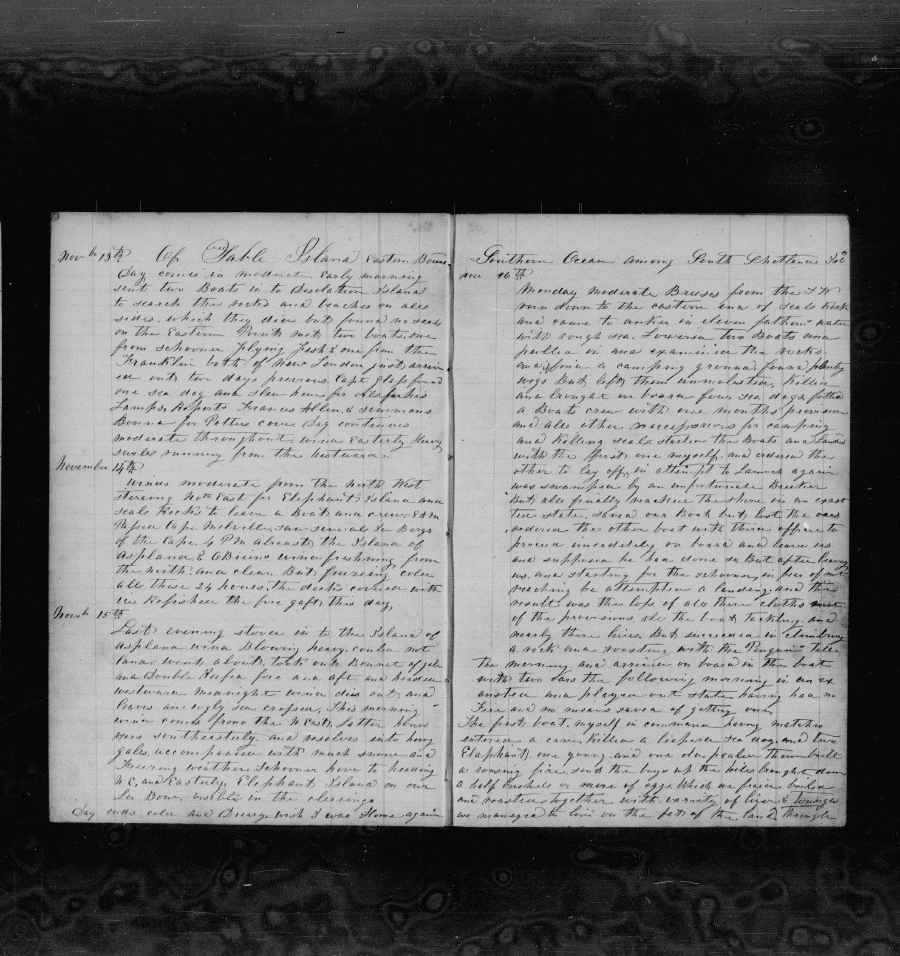 Nov br 13th Of Stable Island Eastern Bound
Day comes in moderate Early morning
sent two Boats in to Desolation Island
to search the rocks and beaches on all
sides. which they did but found no seal
on the Eastern Point met two boats. one
from schooner Flying Fish & one from the
Franklin both of New London just arriv
ed out two days previous. Capt Glass found
one sea dog and slew him for oil for his
Lamps, Reports Francis Allen & Simmons
Bound for Potters cove Day continues
moderate throughout wind Easterly Heavy
swells running from the westward
November 14th
winds moderate from the North West
stering Nth East for Elephant Island and
Seals Rocks to leave a Boat and crew 8 AM
Passed Cape Melville, saw several Ice Bergs
of the Cape 4 PM abreast the Island of
Aspland & OBrien wind freshning from
the north. and clear But freezing cold
all these 24 hours, the decks covered with
ice Refished the fore gaft this day
Novbr 15th
Last evening stood in to the Island of
Aspland wind Blowing heavy. could not
land went about took out Bonnet of jib
and Double Reefed fore and aft and headed
westward midnight wind dies out and
leaves an ugly sea cropsed, This morning
wind comes from the N East, Latter hours
southeasterly, and resolves into
gales accompanied with much snow and
Freezing weather Schooner hove to heading
N E, and Easterly, Elephant Island on our
Lee Bow. visible in the clearings
Day ends cold and Dreary wish I was Home again
Southern Ocean among South Shetlands Isld
nov 16th
Monday moderate Breezes from the S W
run down to the eastern end of Seals Rock
and came to anker in eleven fathoms water
with rough sea. Lowered two Boats and
pulled in and examined the rocks.
and find a camping ground, found plenty
wigs But left them unmolested, Killed
and brought on board four sea dogs fitted
a Boats crew with one months provision
and all other neccessaries for camping
and killing seals started the Boats and Landed
with the first one myself. and ordered the
other to lay off, in attempt to Launch again
was swamped by an unfortunate Breeker
But, all finally reached the shore in an exast
ted state, saved our Boat but, lost the oars
ordered the other boat with three officer to
proced imeaditely on board and leave us
and supposed he had done so, But after leaving
us. and starting for the schooner, in free of not
reaching he attempted a landing and the
result was the loss of all there cloths most
of the provisions all the boat tackling and
nearly there lives, But succeeded in climbing
a rock and roosting with the Penguins till
the morning and arrived on board in the boat
with two oars the following morning in an ex
austed and played out state having had no
Fire and no means saved of getting one,
The first boat, myself in command having matches
entered a cave, Killed a leopard sea dog, and two
Elaphants one young and one old pealed them built
a rousing fire, sent the boys up the hills brought down
a half bushels or more of eggs Which we fried boiled
and roasted together with variety of livers & tounges
we managed to live on the fat of the land, through